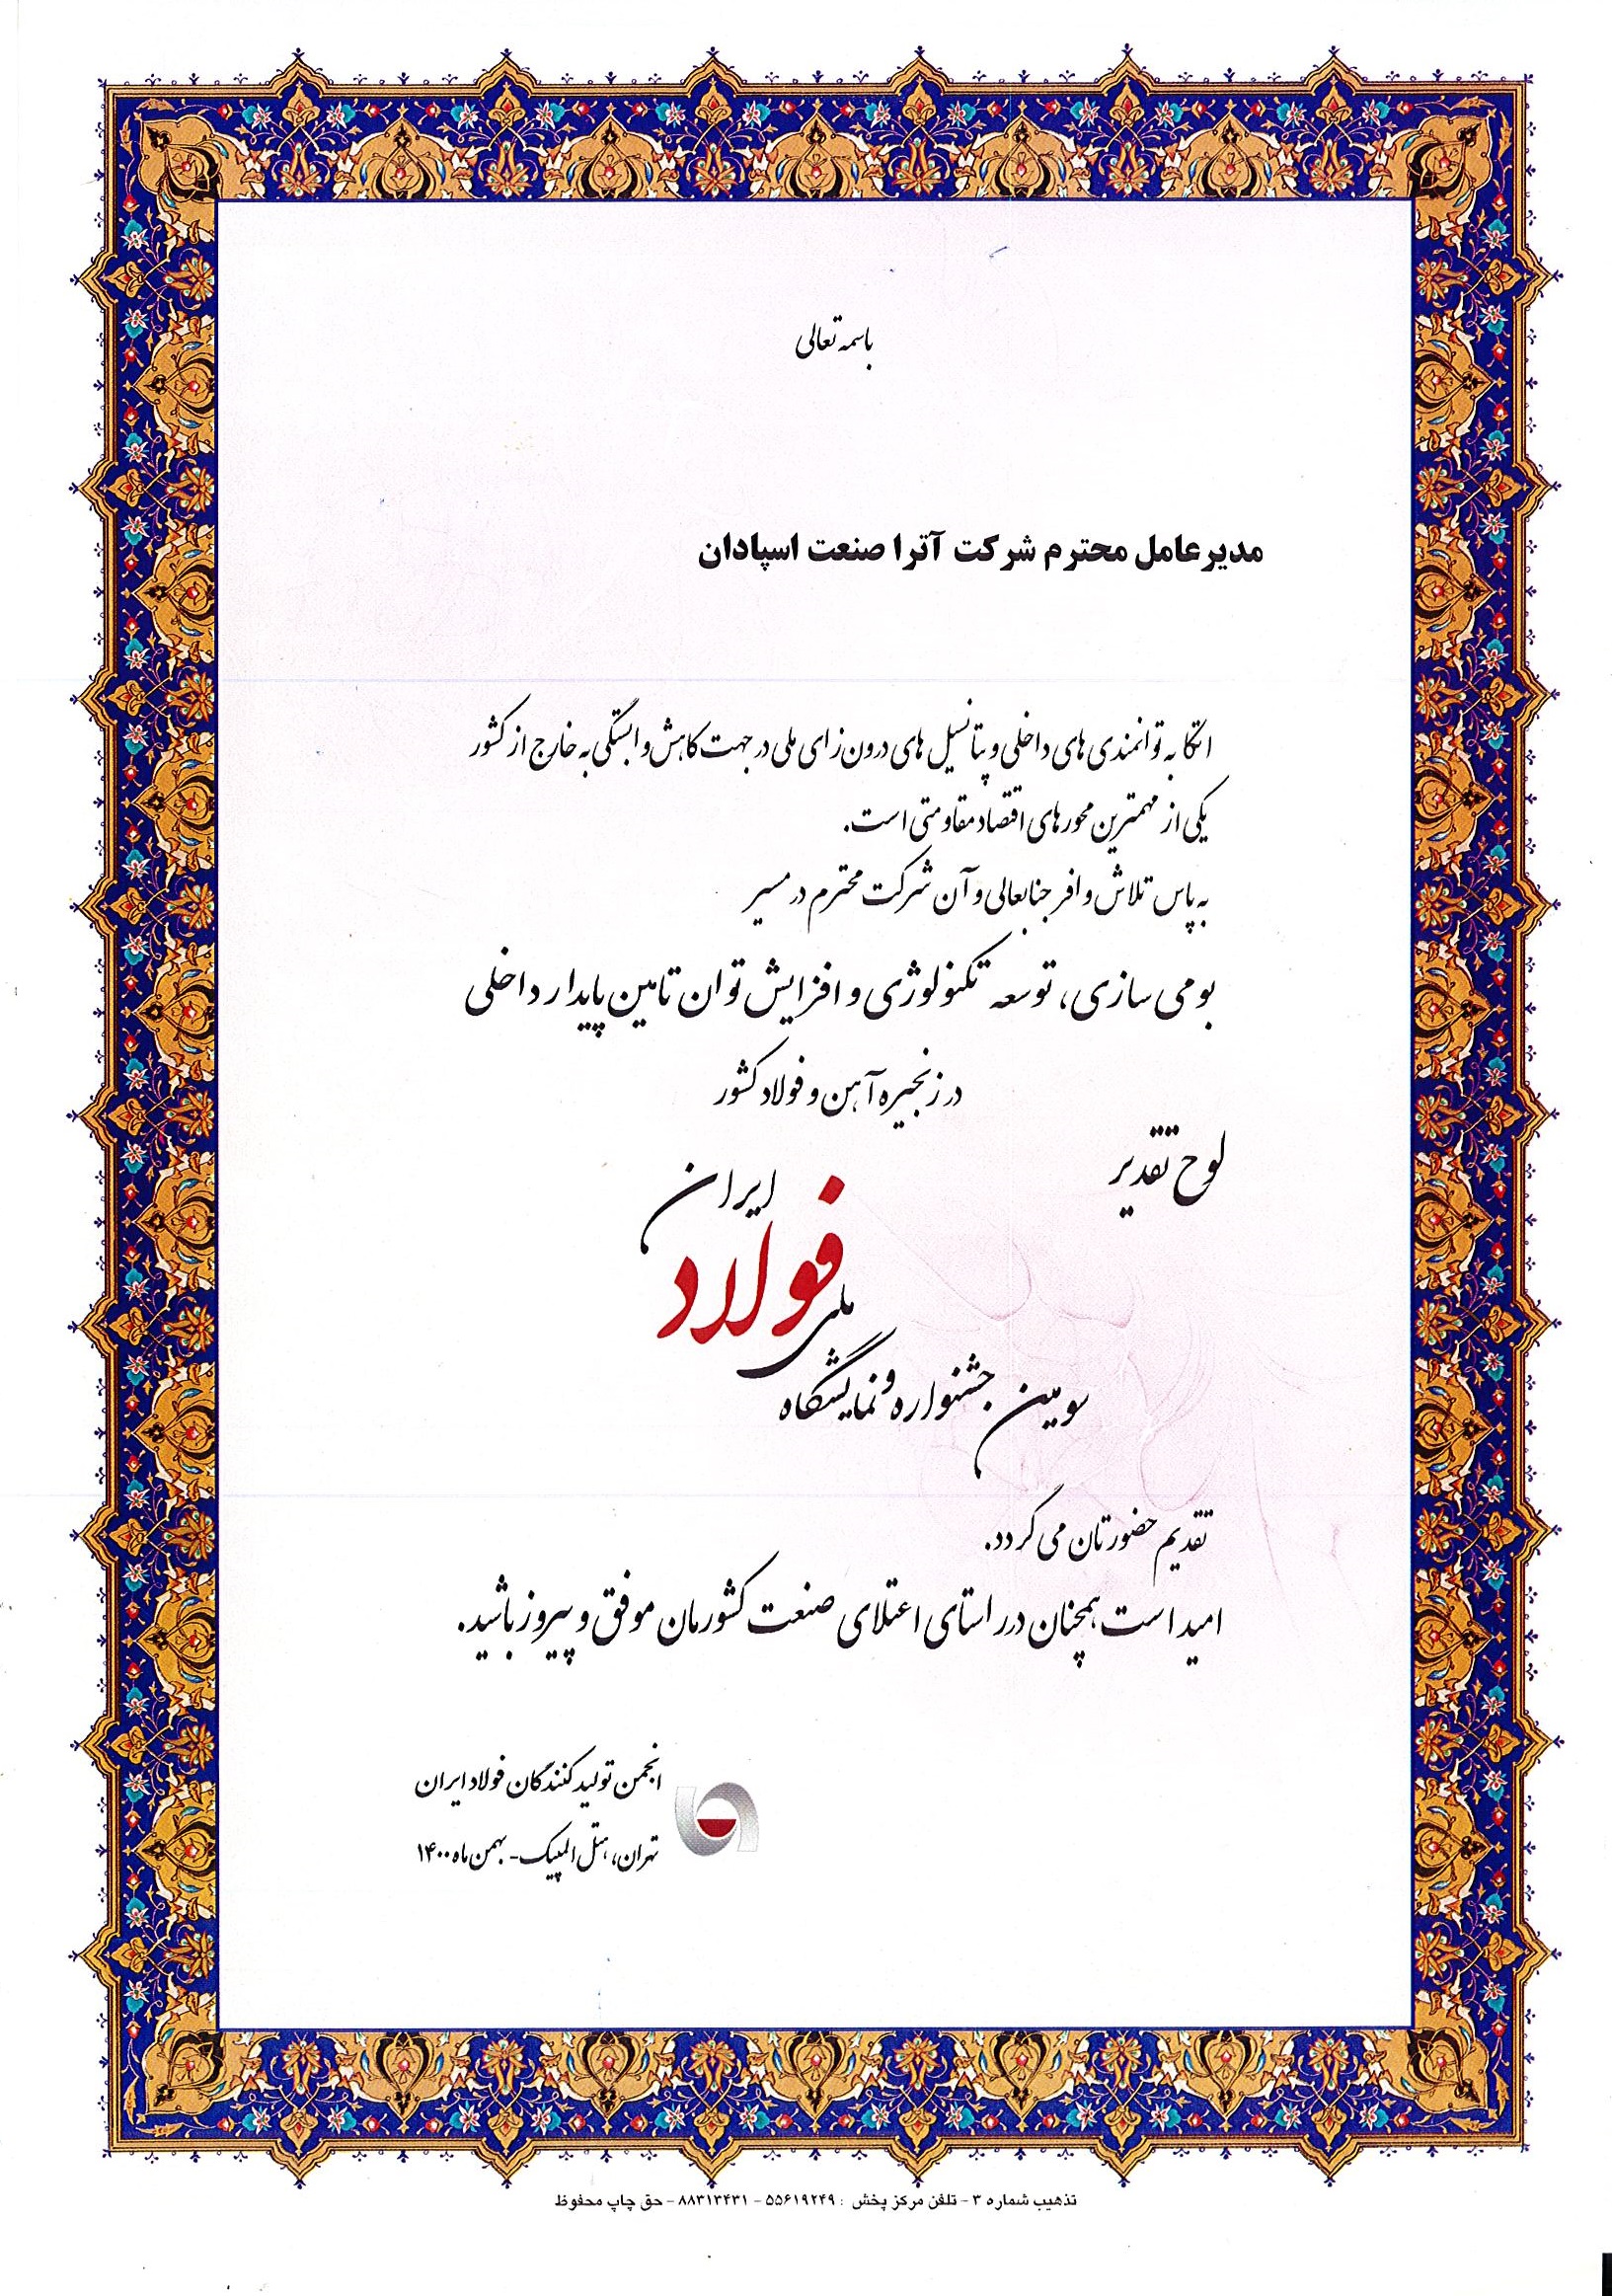 باسمه تعالی
مدیرعامل محترم شرکت آترا صنعت اسپادان
اتکا به توانمندی های داخلی و پتانسیل های درون زای ملی در جهت کاهش وابستگی به خارج از کشور
یکی از مهمترین محورهای اقتصاد مقاومتی است.
به پاس تلاش وافر جنابعالی و آن شرکت محترم در مسیر
بومی سازی، توسعه تکنولوژی و افزایش توان تامین پایدار داخلی
در زنجیره آهن و فولاد کشور
لوح تقدیر
سومین جشنواره و نمایشگاه
ملی
فولاد
ایران
تقدیم حضورتان می گردد.
امید است همچنان در راستای اعتلای صنعت کشورمان موفق و پیروز باشید.
انجمن تولید کنندگان فولاد ایران
تهران، هتل المپیک - بهمن ماه ۱۴۰۰
تذهیب شماره ۳ - تلفن مرکز پخش : ۵۵۶۱۹۲۴۹ - ۸۸۳۱۳۴۳۱ - حق چاپ محفوظ